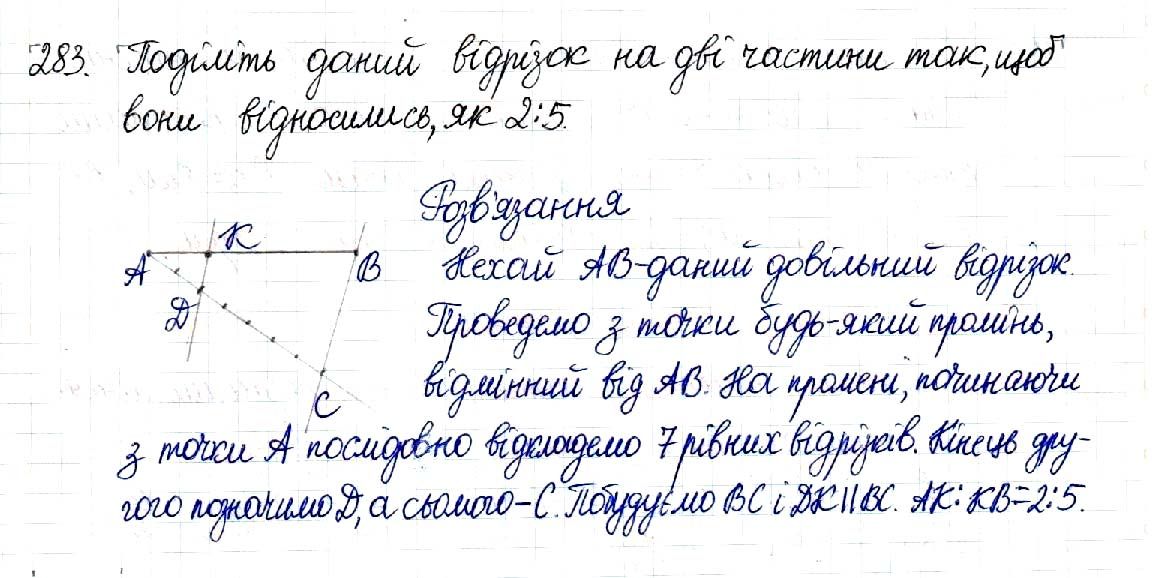 283. Поділіть даний відрізок на дві частини так, щоб
вони відносились, як 2:5.
Розв'язання
К
А
В
D
С
Нехай АВ-даний довільний відрізок.
Проведемо з точки будь-який промінь,
відмінний від АВ. На промені, починаючи
з точки А послідовно відкладемо 7 рівних відрізків. Кінець дру-
гого позначимо D, а сьомого - С. Побудуємо ВС і DК || ВС. АК : КВ = 2:5.